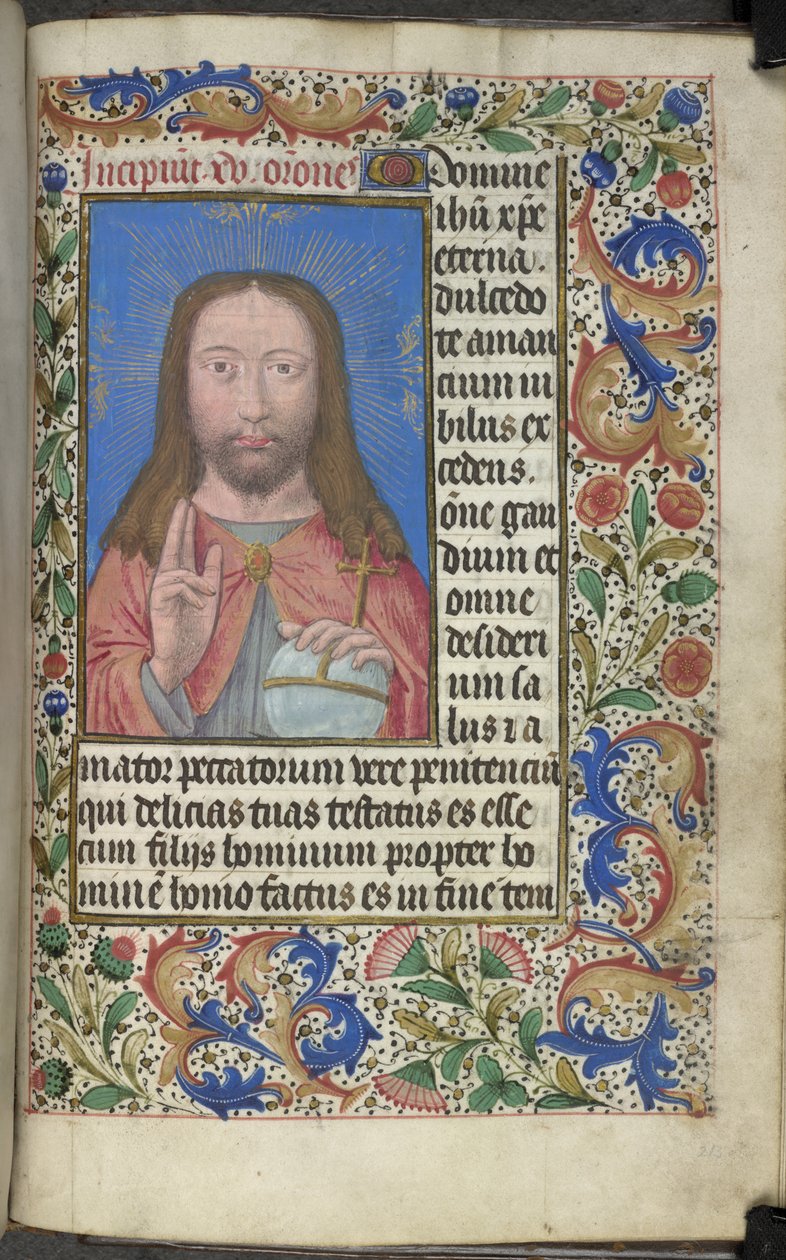 Incipiu̅t · xv · or̅one̅s
Domine
ihū xp̅e
eterna .
dulcedo
te aman
cium iu
bilus ex
cedens .
ōne gau
dium et
omne
desideri
um sa
lus ⁊ a
mator peccatorum vere penitenciū
qui delicias tuas testatus es esse
cum filijs hominum propter ho
minē homo factus es in fine tem
213